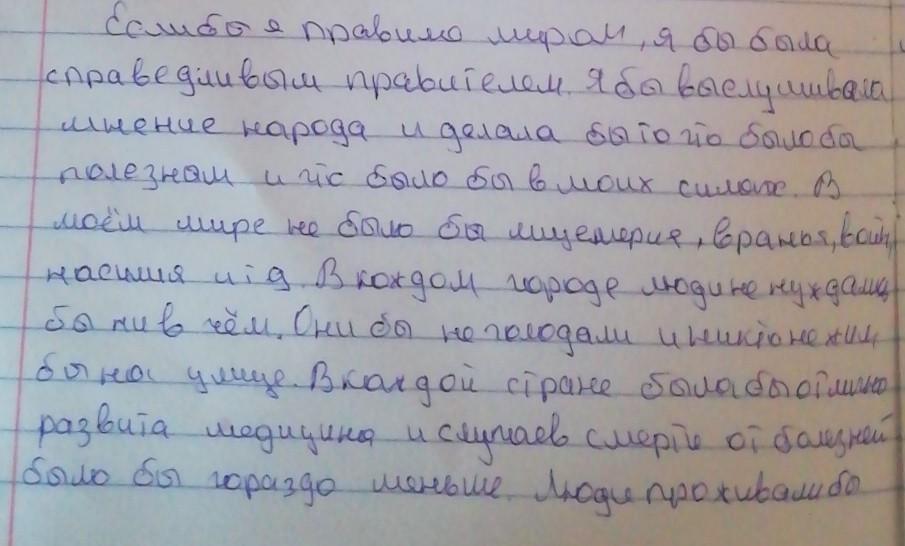 Если бы я правила миром, я бы была
справедливым правителем. Я бы выслушивала
мнение народа и делала бы то что было бы
полезном и что было бы в моих силах. В
моём мире не было бы лицемерия, вранья, войн,
насилия и т д. В каждом городе люди не нуждались
бы ни в чём. Они бы не голодали и никто не жил
бы на улице. В каждой стране была бы отлично
развита медицина и случаев смерти от болезней
было бы гораздо меньше. Люди проживали бы